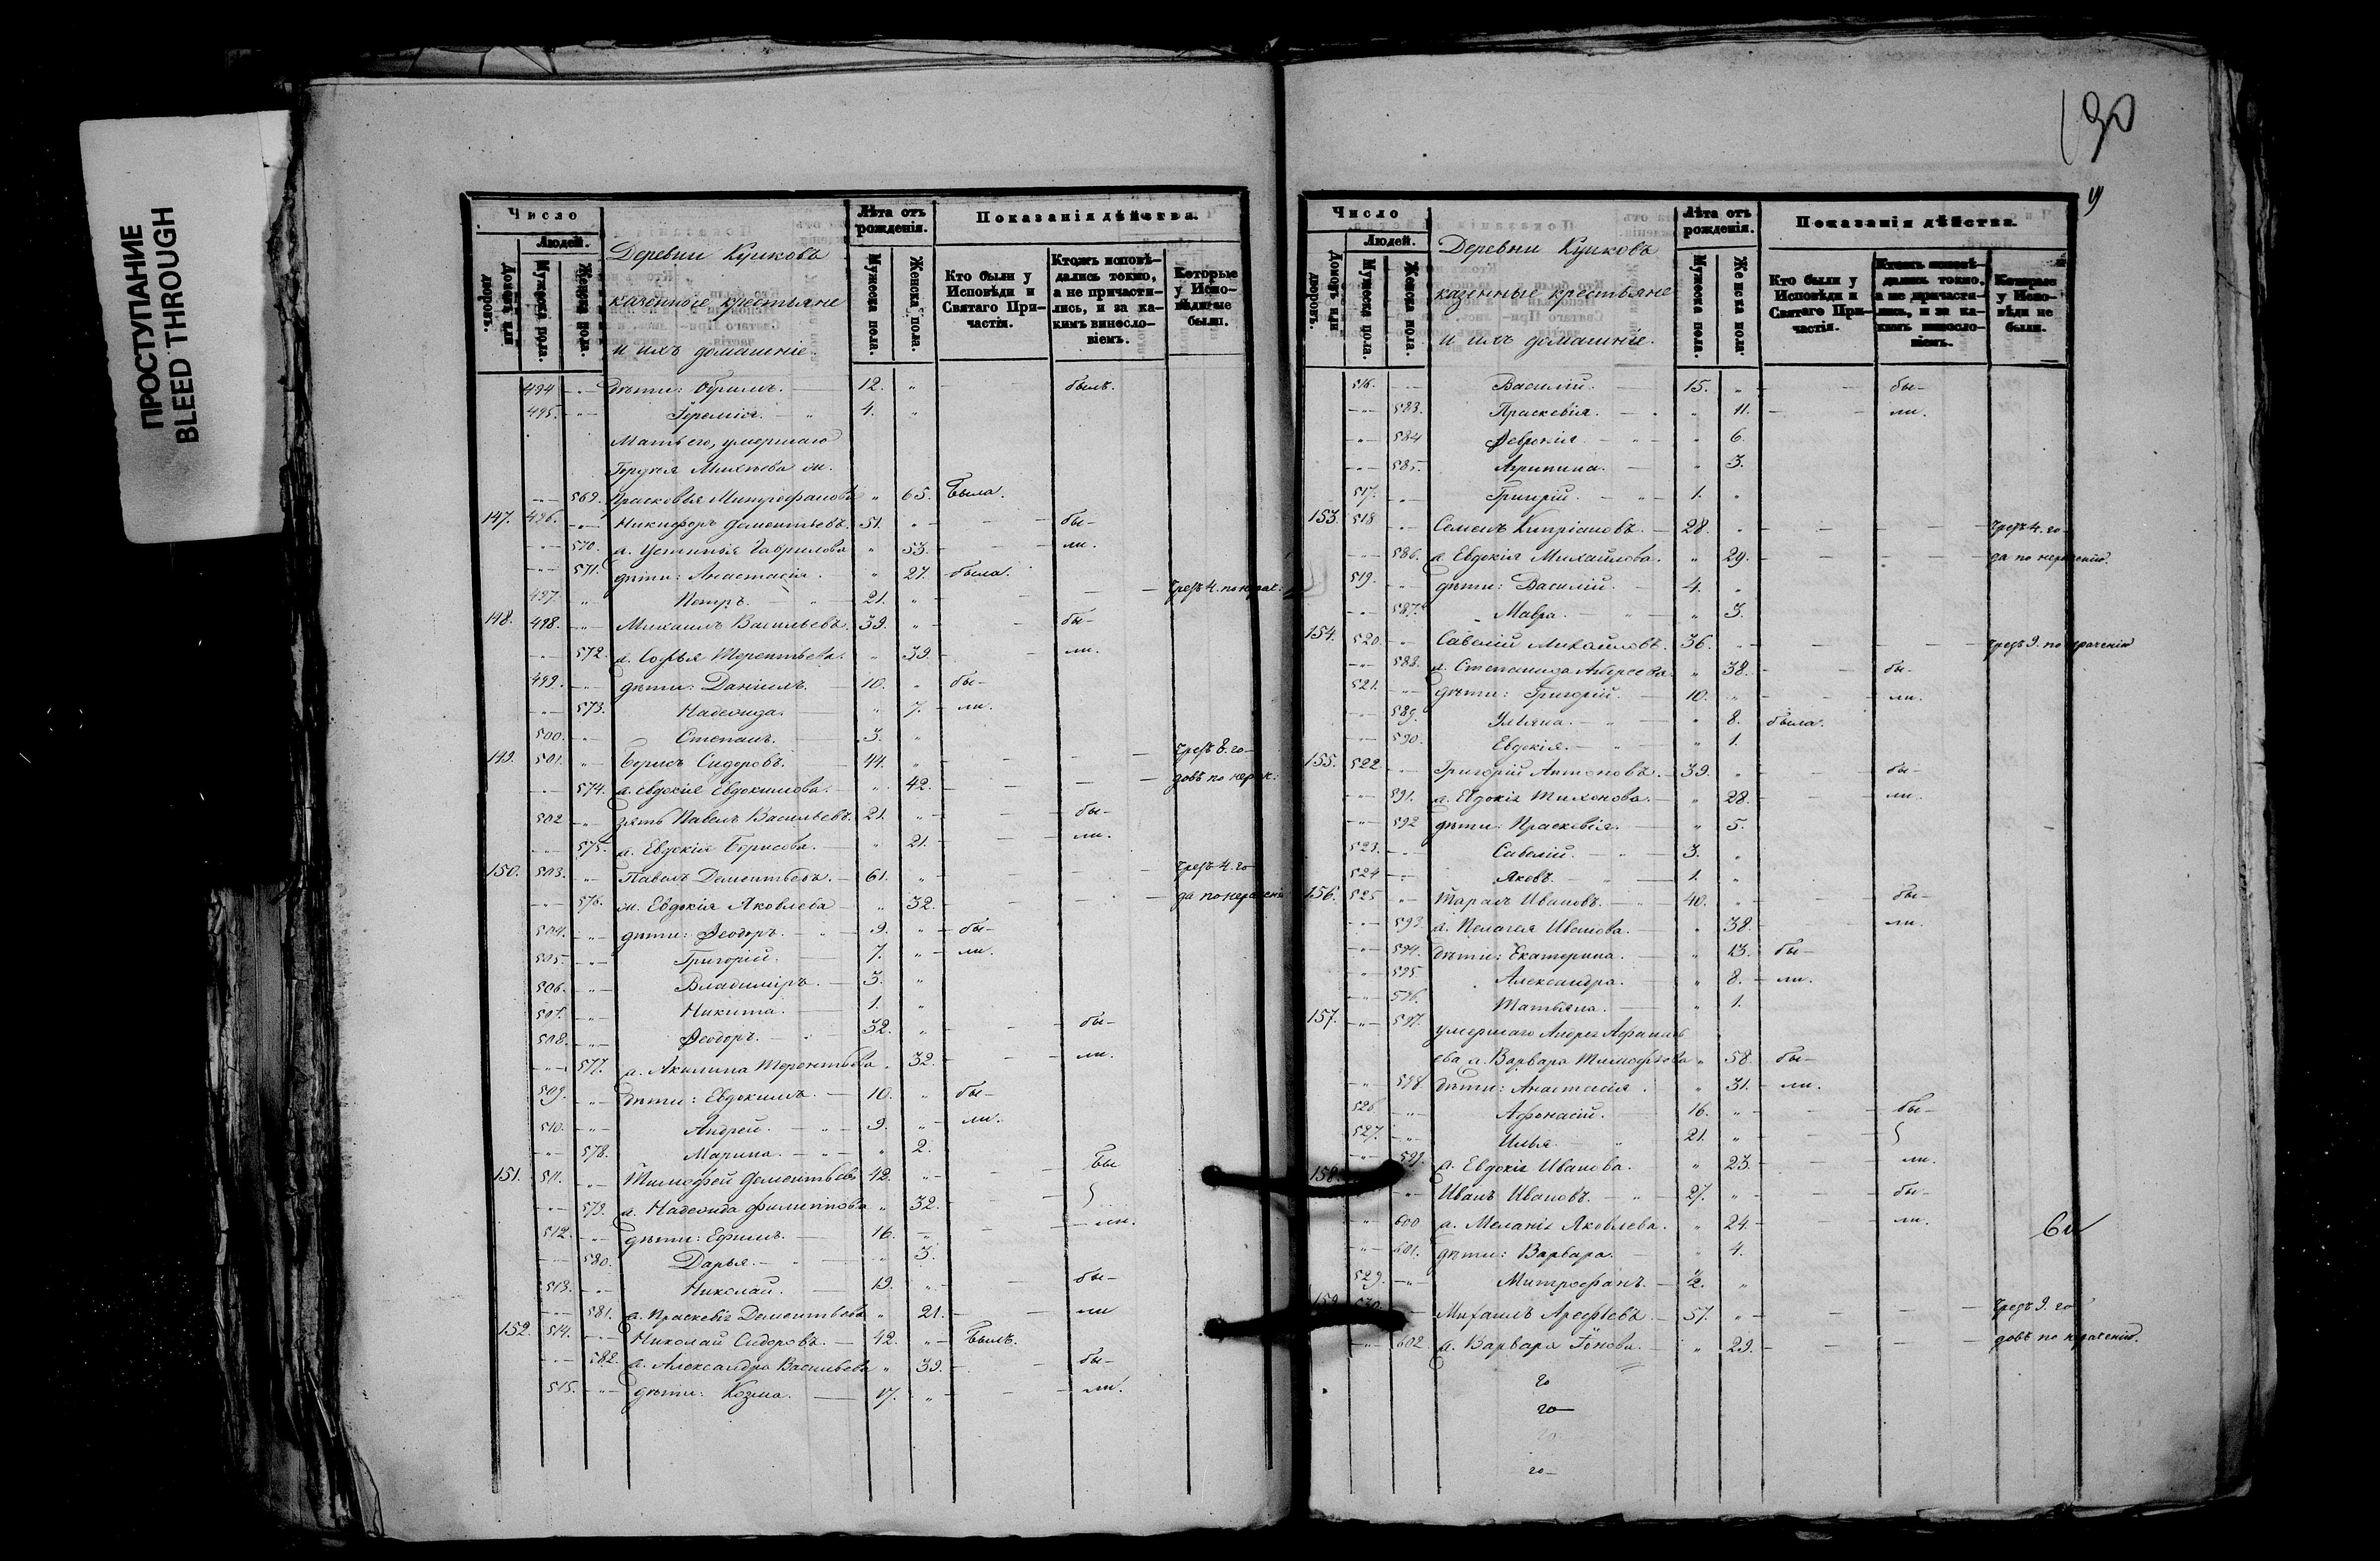 ПРОСТУПАНИЕ
BLEED THROUGH
Число
Людей.
Домовъ или дворовъ.
Мужеска пола.
Женска пола.
Деревни Кушковъ
казенные крестьяне
и ихъ домашніе.
Лѣта отъ рожденія.
Мужеска пола.
Женска пола.
Показанія дѣйства.
Кто были у Исповѣди и Святаго Причастія.
Ктожъ исповѣдались токмо, а не причастились, и за какимъ винословіемъ.
Которые у Исповѣди не были.
494 дѣти: Ефимъ. 12. былъ.
495. Іеремія. 4.
Мать его, умершаго
569. Прасковья Митрофанова 65. была.
147. 496. Никифоръ Дементьевъ. 51. бы-
570. ж. Устинія Гаврилова 53. ли.
571. дѣти: Анастасія. 27. была.
497. Петръ. 21. чрезъ 4. по нерач:
148. 498. Михаилъ Васильевъ. 39. бы-
572. ж. Софья Терентьева. 39. ли.
499. дѣти: Даніилъ. 10. бы-
573. Надежда. 7. ли.
500. Степанъ. 3.
149. 501. Борисъ Сидоровъ. 44. чрезъ 8. го-
574. ж. Евдокія Евдокимова. 42. довъ по нерач:
502 зять Павелъ Васильевъ. 21. бы-
575. ж. Евдокія Борисова. 21. ли.
150. 503. Павелъ Дементьевъ. 61. чрезъ 4. го-
576. ж. Евдокія Яковлева 32. да по нерачені
504. дѣти: Ѳеодоръ. 9. бы-
505. Григорій. 7. ли.
506. Владиміръ. 3.
507. Никита. 1.
508. Ѳеодоръ. 32. бы-
577. ж. Акилина Терентьева 32. ли.
509. дѣти: Евдокимъ. 10. бы-
510. Андрей. 9. ли.
578. Марина. 2.
151. 511. Тимофей Дементьевъ 42. бы
579. ж. Надежда Филиппова 32.
512. дѣти: Ефимъ. 16. ли.
580. Дарья. 3.
513. Николай. 19. бы-
581. ж. Праскевія Дементьева 21. ли
152. 514. Николай Сидоровъ. 42. былъ.
582. ж. Александра Васильева 39. бы-
515. дѣти: Козма. 17. ли.
190
Число
Людей.
Домовъ или дворовъ.
Мужеска пола.
Женска пола.
Деревни Кушковъ
казенные крестьяне
и ихъ домашніе.
Лѣта отъ рожденія.
Мужеска пола.
Женска пола.
Показанія дѣйства.
Кто были у Исповѣди и Святаго Причастія.
Ктожъ исповѣдались токмо, а не причастились, и за какимъ винословіемъ.
Которые у Исповѣди не были.
516. Василій. 15. бы-
583. Праскевія. 11. ли.
584 Ѳеврокія. 6.
585. Агрипина. 3.
517. Григорій. 1.
153. 518 Семенъ Кипріановъ. 28. чрезъ 4. го-
586. ж. Евдокія Михайлова. 29. да по нераченію.
519. дѣти: Василій. 4.
587. Мавра. 3.
154. 520. Савелій Михайловъ. 36. чрезъ 9. по нераченію
588. ж. Степанида Андреева. 38. бы-
521. дѣти: Григорій. 10. ли.
589. Ульяна. 8. была.
590. Евдокія. 1.
155. 522. Григорій Антоновъ. 39. бы-
591. ж. Евдокія Тихонова. 28. ли.
592 дѣти: Праскевія. 5.
523. Савелій. 3.
524 Яковъ. 1.
156. 525 Тарасъ Ивановъ. 40. бы-
593 ж. Пелагея Иванова. 38. ли.
594. дѣти: Екатерина. 13. бы-
595 Александра. 8. ли.
596. Татьяна. 1.
157. 597. умершаго Андрея Афанась
ева ж. Варвара Тимофеева 58. бы-
598 дѣти: Анастасія. 31. ли.
526 Афонасій. 16. бы-
527. Илья. 21.
599. ж. Евдокія Иванова. 23. ли.
158. Иванъ Ивановъ. 27. бы-
600 ж. Меланія Яковлева. 24. ли.
601. дѣти: Варвара. 4.
529. Митрофанъ. 1/2.
159. 530. Михаилъ Арефьевъ. 57. чрезъ 9. го
602 ж. Варвара Іонова. 29. довъ по нераченію.
го
го
го